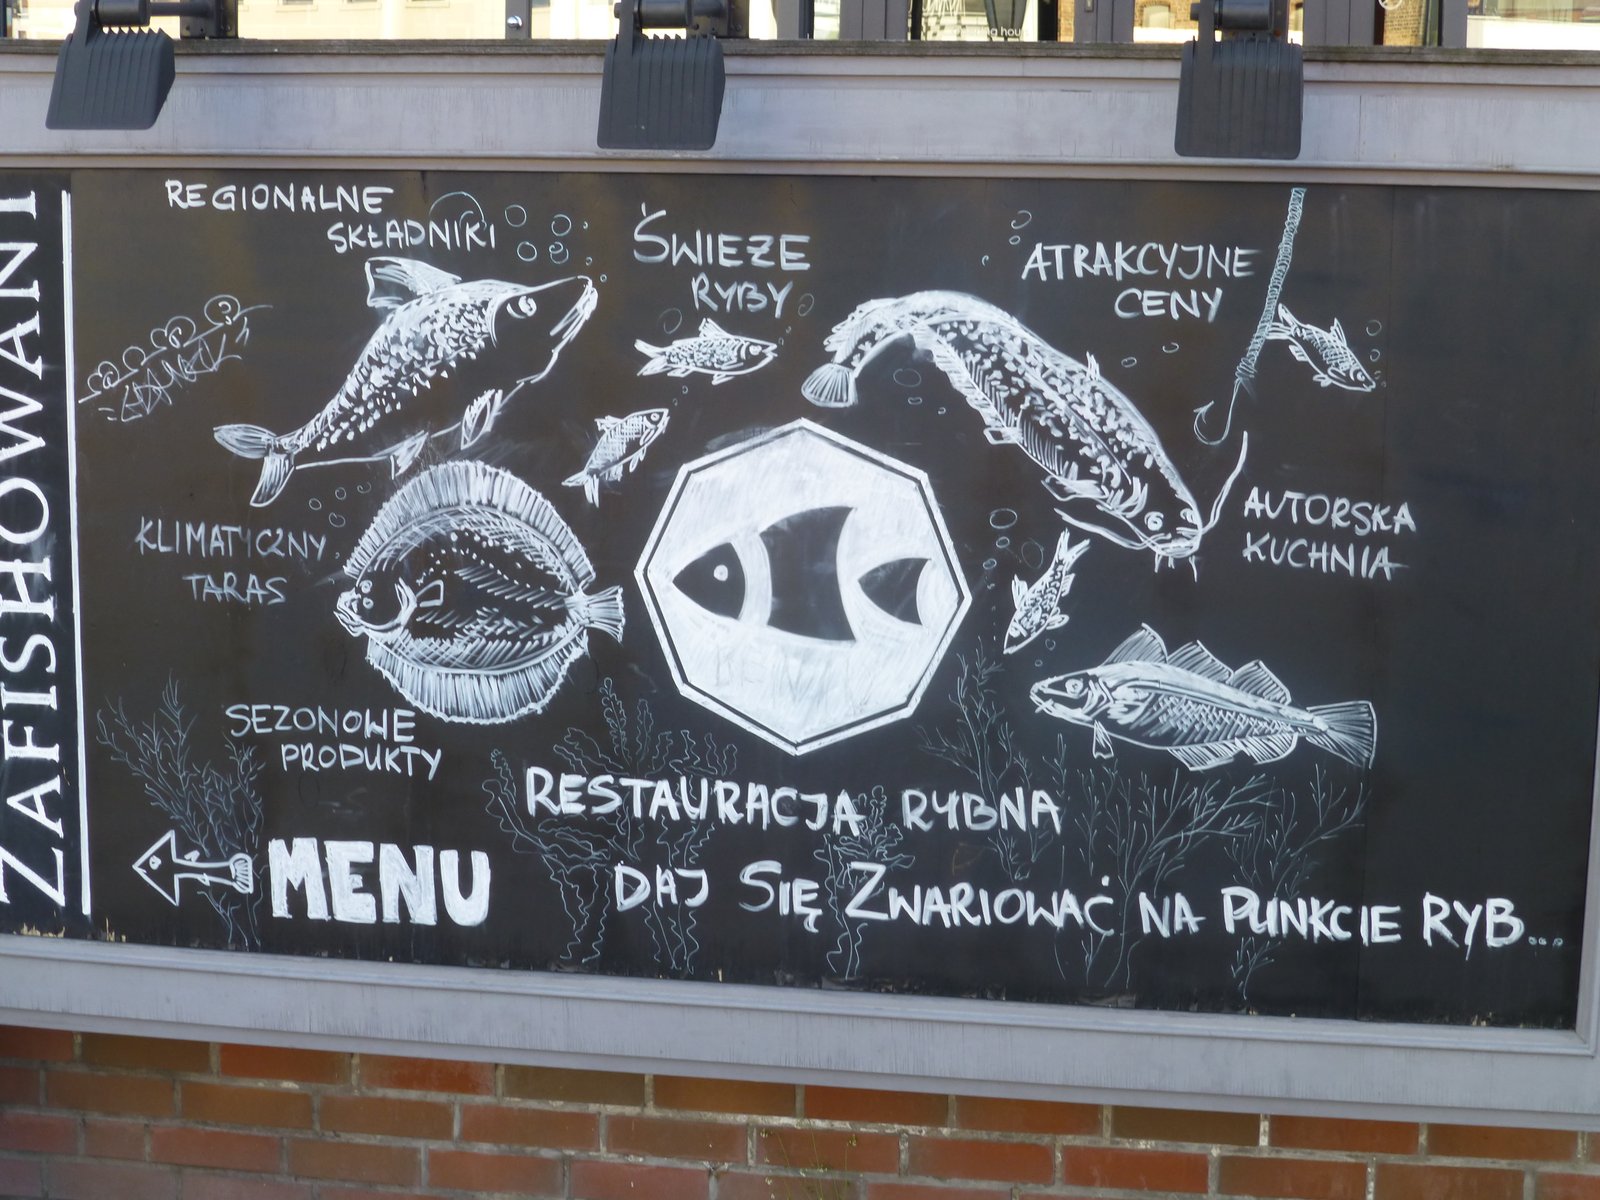 ZAFISHOWANI
REGIONALNE
SKŁADNIKI
ŚWIEŻE
RYBY
ATRAKCYJNE
CENY
KLIMATYCZNY
TARAS
AUTORSKA
KUCHNIA
SEZONOWE
PRODUKTY
RESTAURACJA RYBNA
MENU
DAJ SIĘ ZWARIOWAĆ NA PUNKCIE RYB...